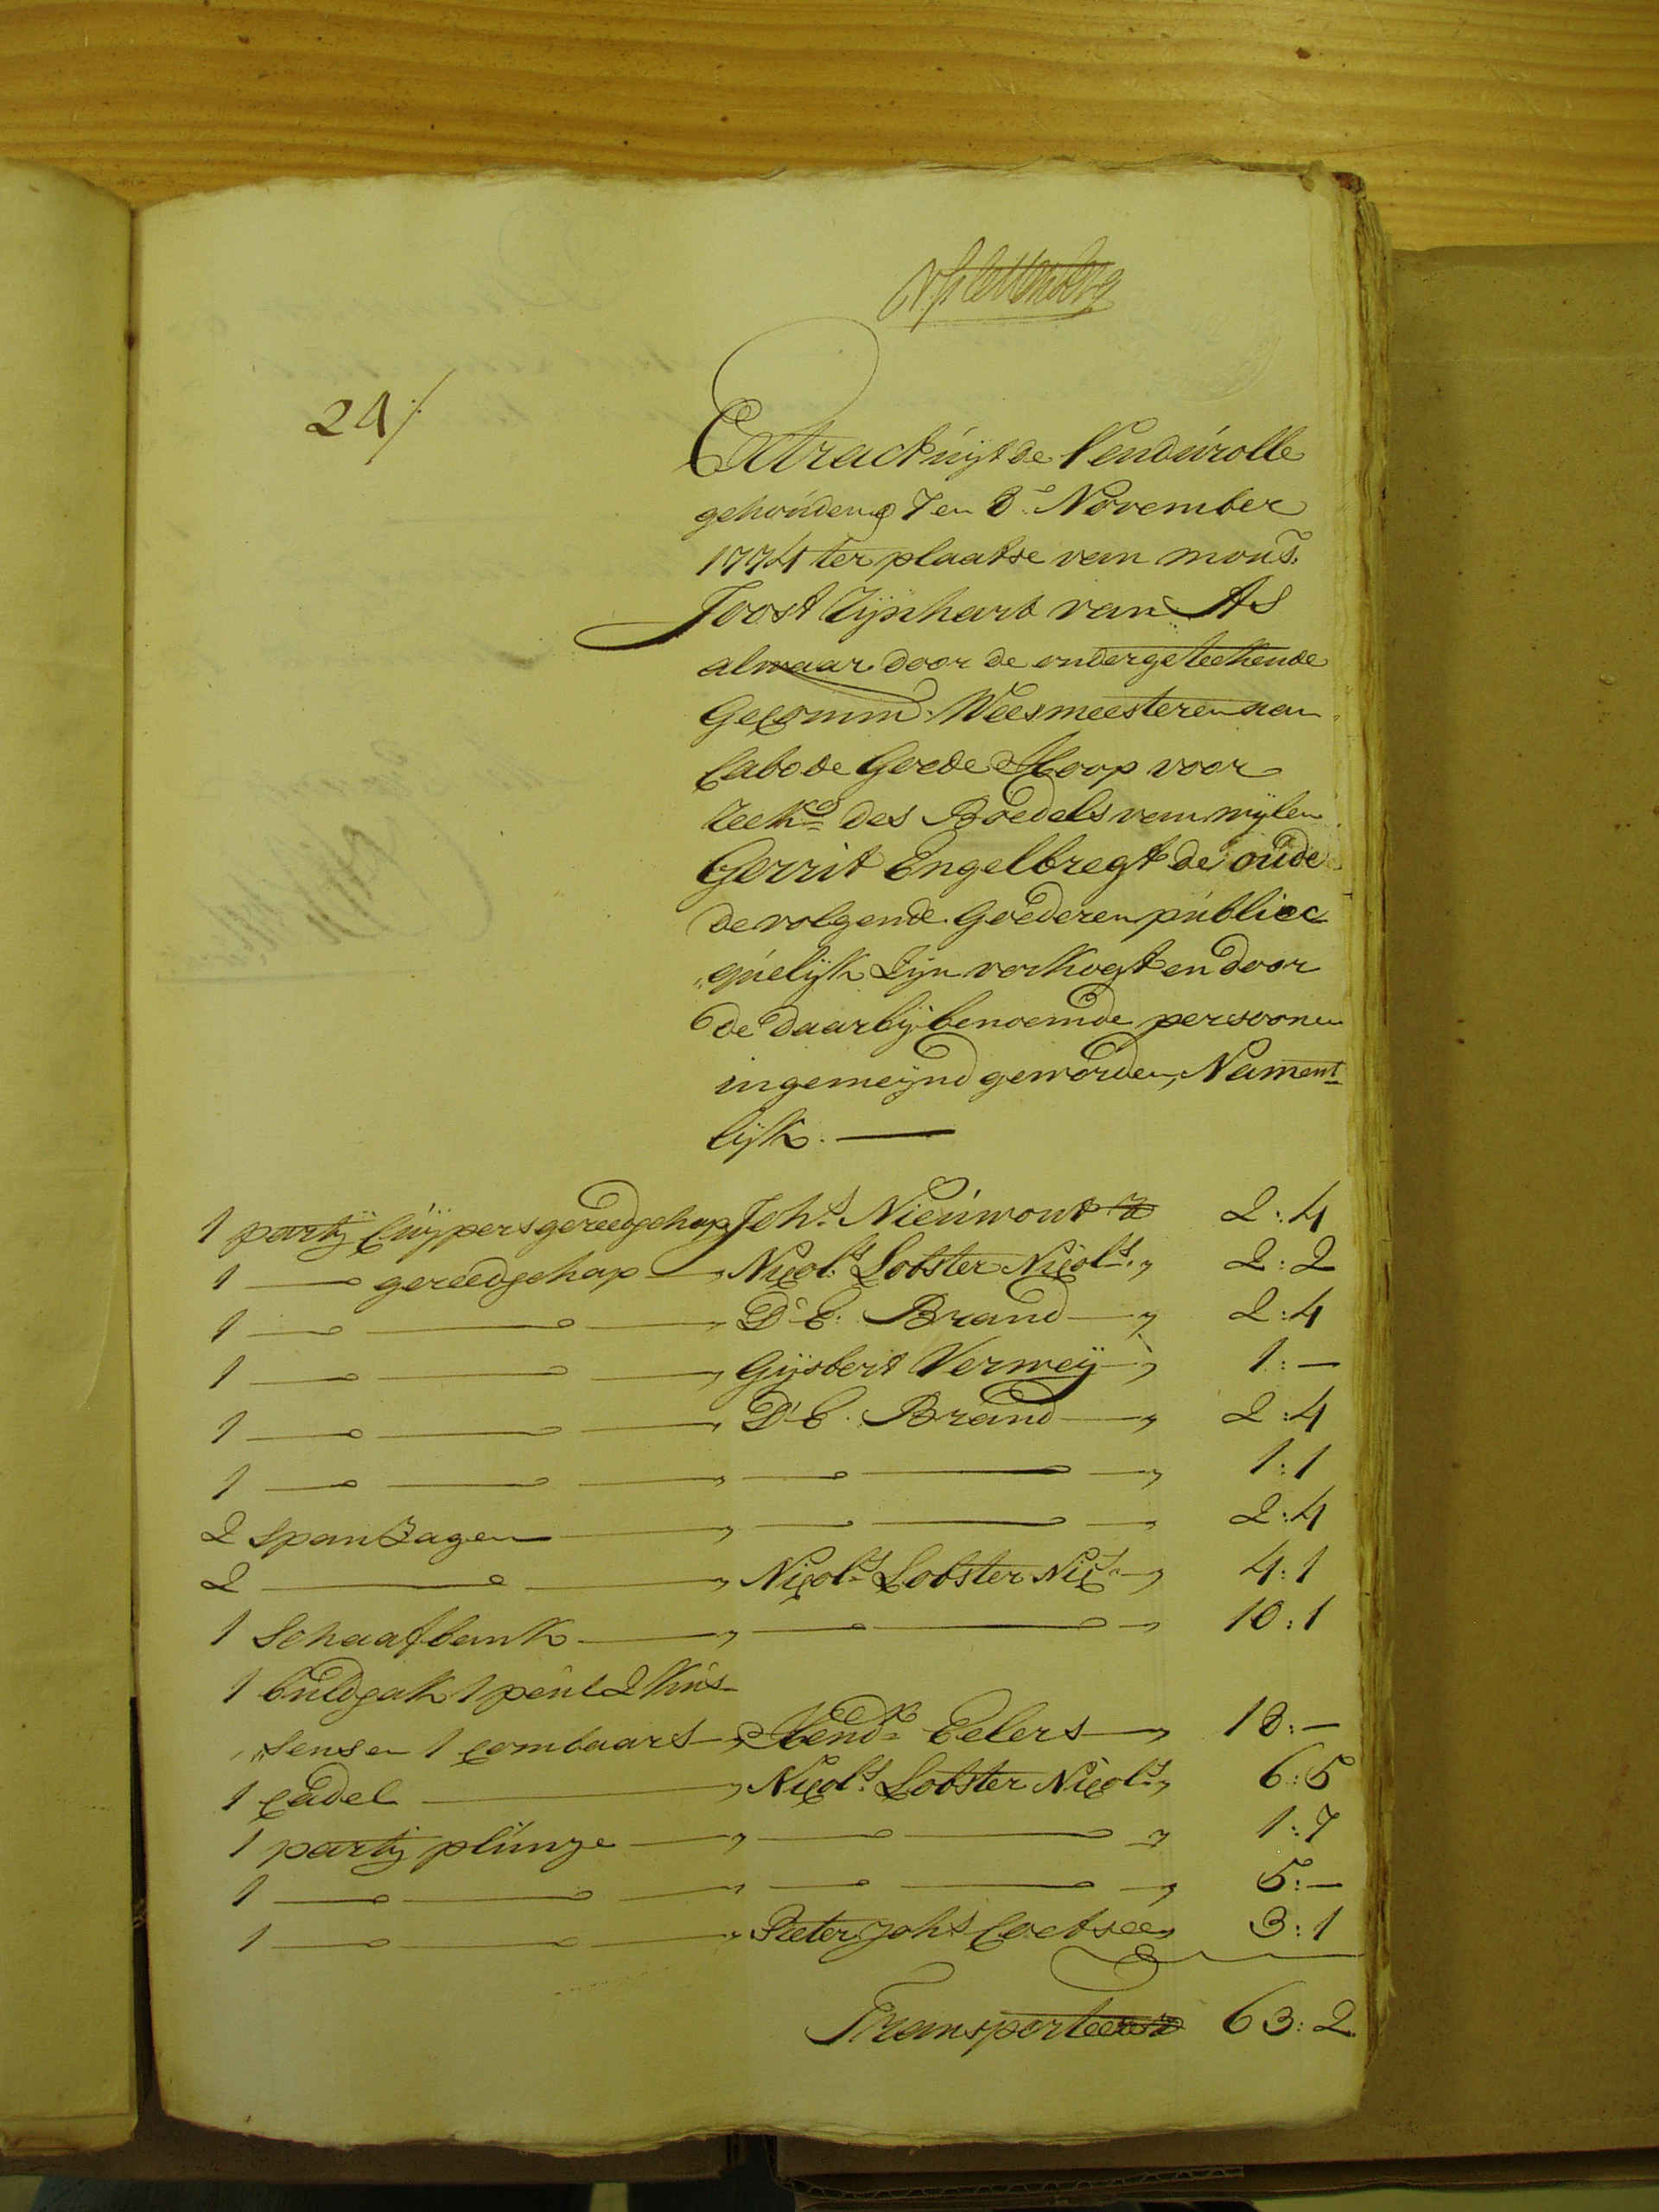 24/.
Extract uijt de Vendurolle
gehouden 7 en 8.e November
1774 ter plaatse van mons.
Joost Rijnhart van As
alwaar door de ondergeteekende
Gecomm.d Weesmeesteren aan
Cabo de Goede Hoop voor
Reek.g des Boedels van wijlen
Gerrit Engelbregt de oude
de volgende Goederen publicc
„quelijk Zijn verkogt en door
de daar bij benoemde persoonen
ingemeijnd geworden, Nament
lijk. —
1 partij Cuijpers gereedschap Joh.s Nieuwout R 2:4
1 — gereedschap — „ Nicol.s Lobster Nicol.s „ 2:2
1 — — — „ D.C. Brand — „ 2:4
1 — — — „ Gijsbert Vermeij „ 1:—
1 — — — „ D.C. Brand — „ 2:4
1 — — — „ — — — „ 1:1
2 Span Zagen — „ — — — „ 2:4
2 — — „ Nicol.s Lobster Nic.s „ 4:1
1 Schaafbank — „ — — „ 10:1
1 bultzak 1 peul 2 kus-
„sens en 1 combaars — „ Hend.k Eelers — „ 18:—
1 Cadel — „ Nicol.s Lobster Nicol.s „ 6:5
1 partij plunje — „ — — „ 1:7
1 — — — „ — — „ 5:—
1 — — — „ Pieter Joh.s Coetsee „ 3:1
Transporteere R 63:2